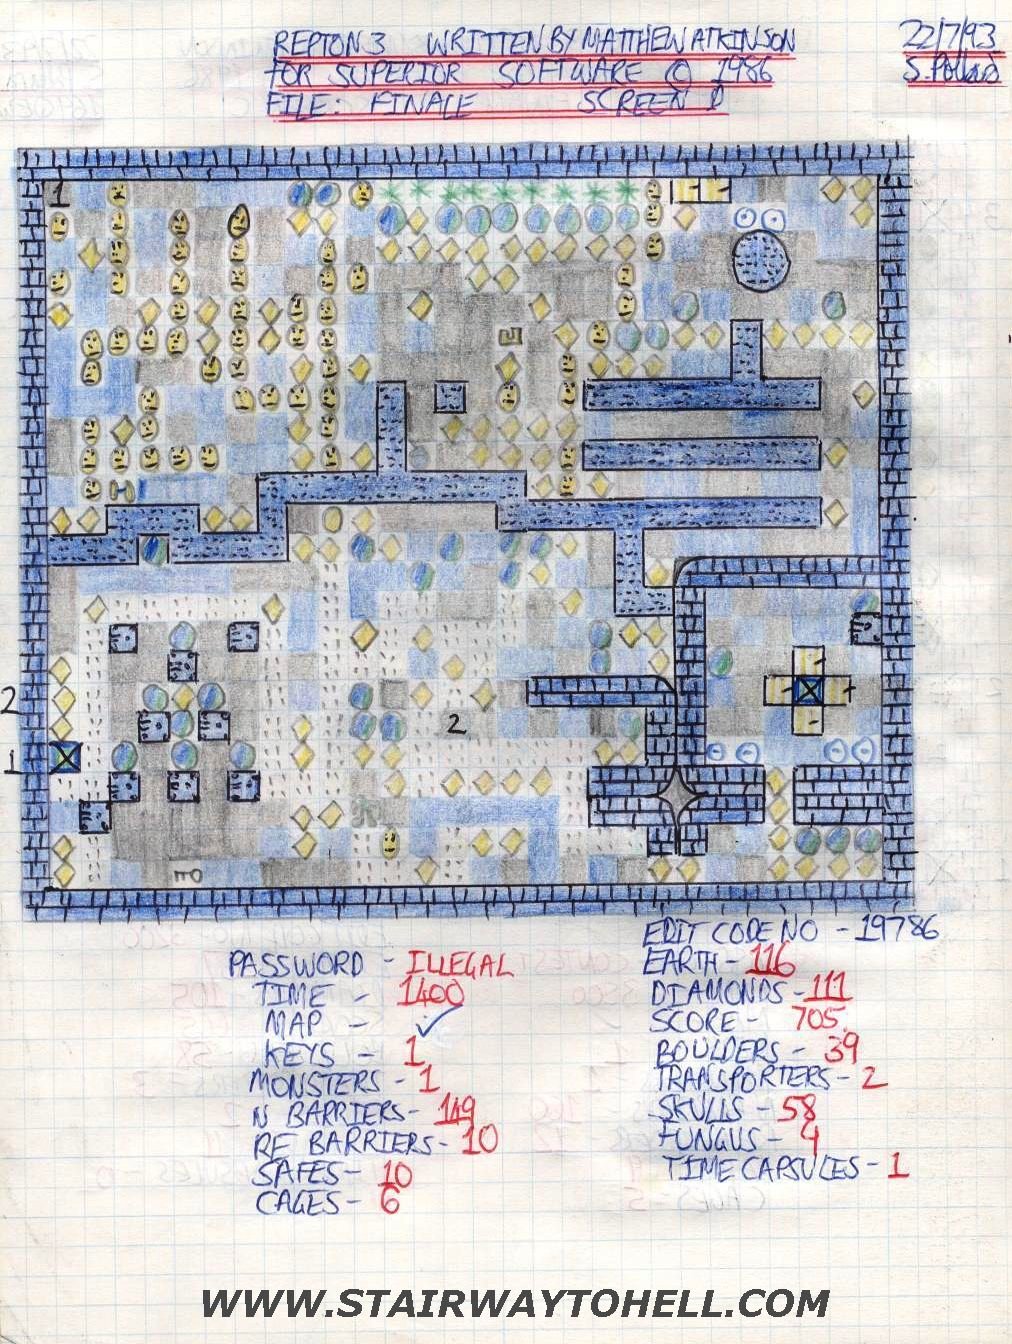 REPTON 3 WRITTEN BY MATTHEW ATKINSON
FOR SUPERIOR SOFTWARE © 1986
FILE: FINALE SCREEN D
22/7/93
S. Pollard
1
2
1
2
PASSWORD - ILLEGAL
TIME - 1400
MAP - ✓
KEYS - 1
MONSTERS - 1
N BARRIERS - 149
RE BARRIERS - 10
SAFES - 10
CAGES - 6
EDIT CODE NO - 19786
EARTH - 116
DIAMONDS - 111
SCORE - 705
BOULDERS - 39
TRANSPORTERS - 2
SKULLS - 58
FUNGUS - 4
TIME CAPSULES - 1
WWW.STAIRWAYTOHELL.COM